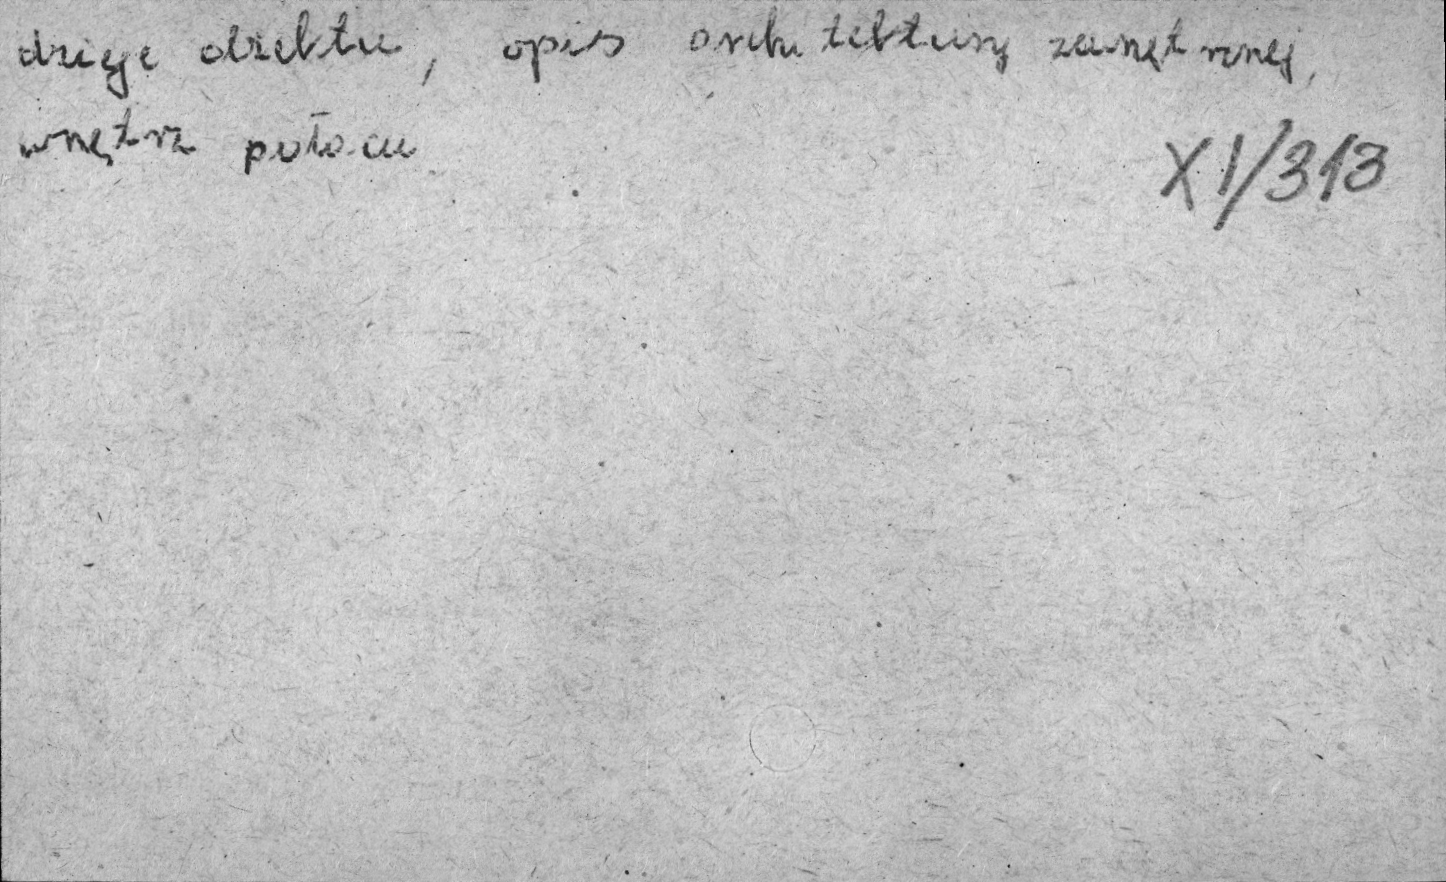 dzieje obiektu, opis architektury zewnętrznej,
wnętrz pałacu
XI/313